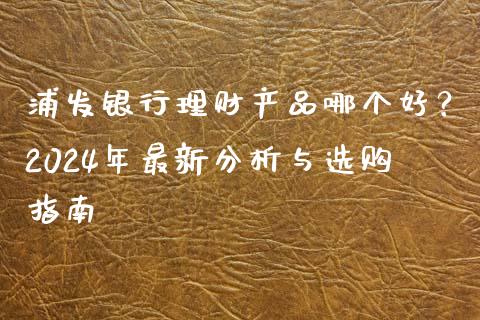 浦发银行理财产品哪个好？
2024年最新分析与选购
指南